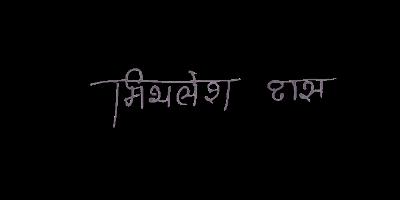 मिथलेश दास